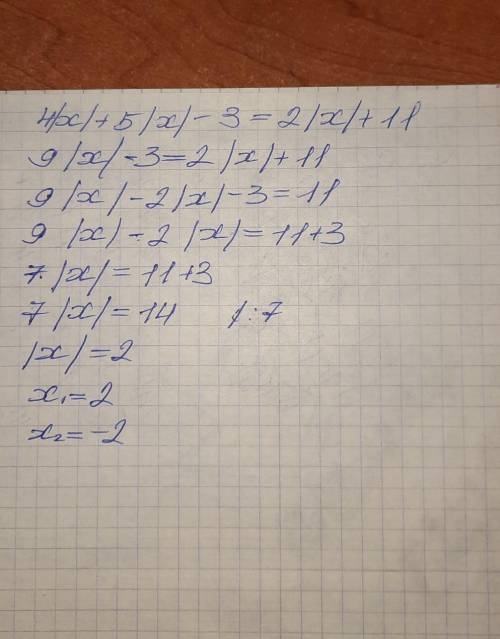 4|x|+5|x|-3=2|x|+11
9|x|-3=2|x|+11
9|x|-2|x|-3=11
9|x|-2|x|=11+3
7·|x|=11+3
7|x|=14 |:7
|x|=2
x₁=2
x₂=-2